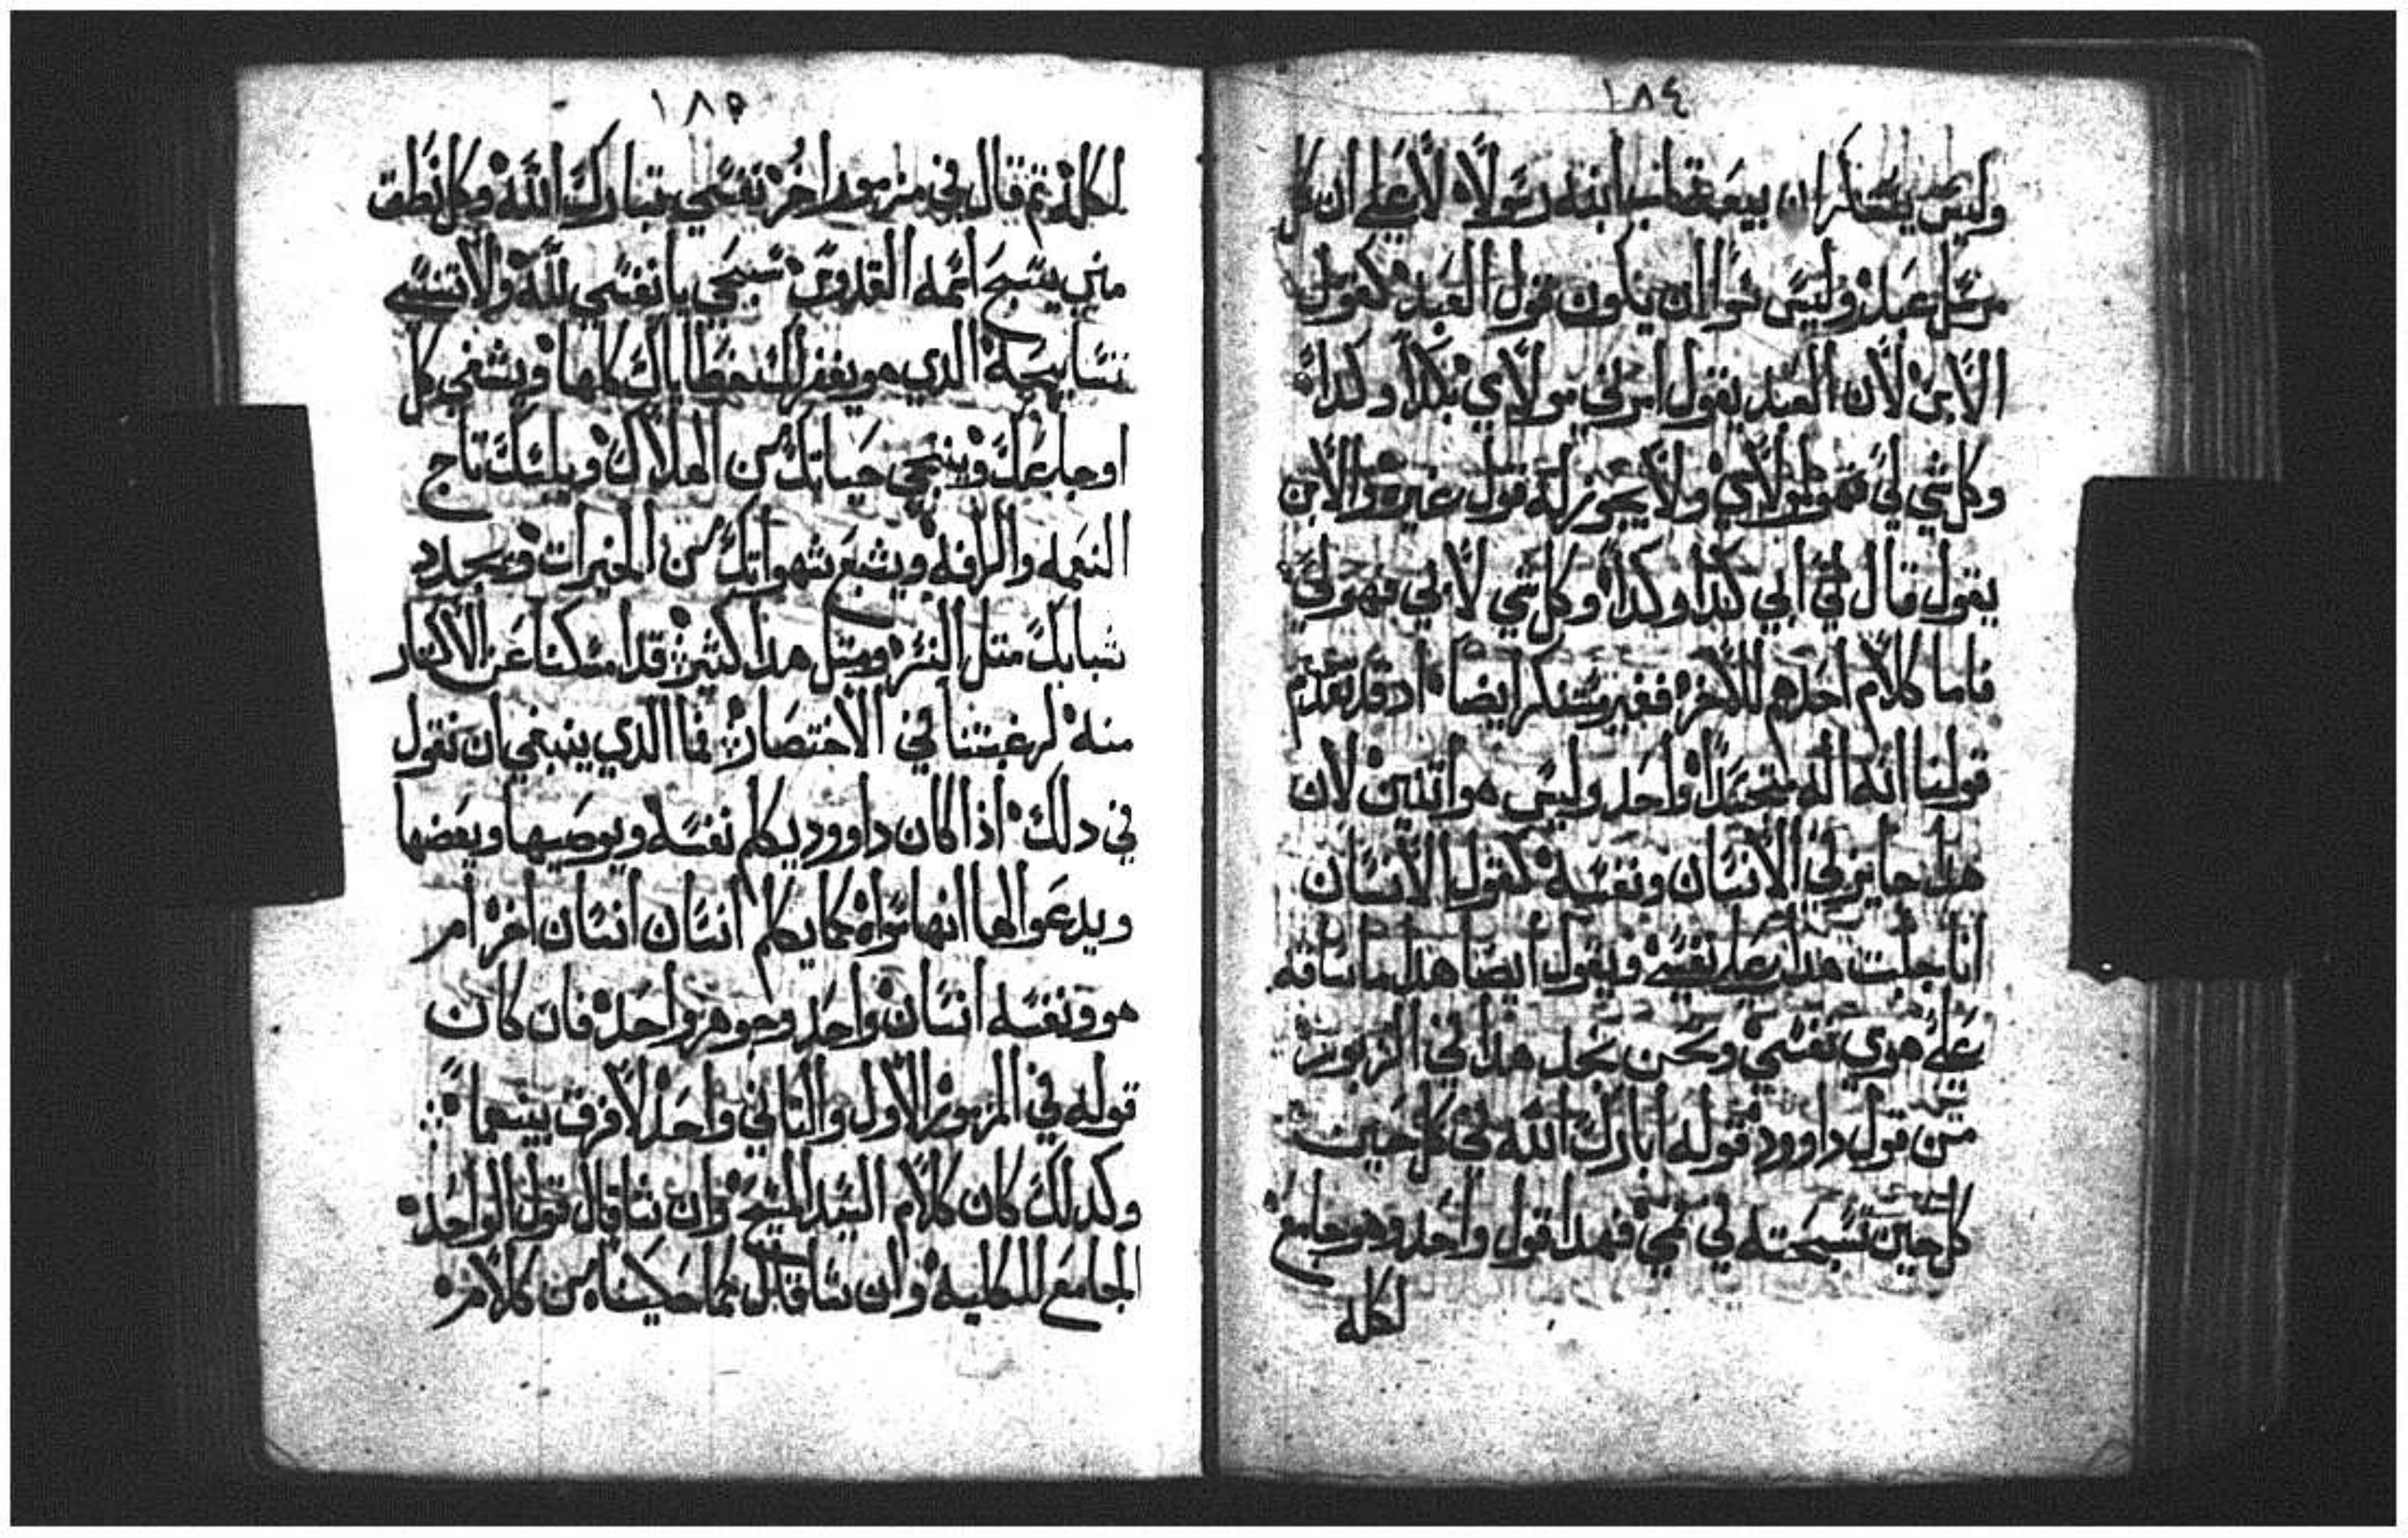 ١٨٤
وليس يستنكر ان يبعث ابنه رسولا لا علي ان كل
مرسل عبد وليس سوا ان يكون قول العبد كقول
الابن لان العبد يقول امرني مولاي بكدا وكدا
وكل شي لي فهو لمولاي ولا يجوز له قول غيره والابن
يقول قال لي ابي كدا وكدا وكل شي لابي فهو لي
فاما كلام احدهم للاخر فغير مستنكر ايضا اد قد تقدم
قولنا انه اله متجسدا واحد وليس هو اتنين لان
هدا جايز في الانسان ونفسه كقول الانسان
انا جلبت هدا علي نفسي ويقول ايضا هدا ما ساقه
علي هوي نفسي ونحن نجد هدا في الزبور
من قول داوود قوله ابارك الله في كل حين
كل حين تسبحته في فمي فهدا قول واحد وهو جامع
لكله
١٨٥
لكله تم قال في مزمور اخر نفسي تبارك الله وكل نطق
مني يسبح اسمه القدوس سبحي يا نفسي لله ولا تنسي
تسابيحه الدي هو يغفر لك خطاياك كلها ويشفي كل
اوجاعك وينجي حياتك من الهلاك ويلبسك تاج
النعمه والرافه ويشبع شهواتك من الخيرات ويجدد
شبابك متل النسر ومتل هدا كتير قد امسكنا عن الاكتار
منه لرغبتنا في الاختصار فما الدي ينبغي ان نقول
في دلك ادا كان داوود يكلم نفسه ويوصيها ويعضها
ويدعوا لها انها سواه كما يكلم انسان انسان اخر ام
هو ونفسه انسان واحد وجوهر واحد فان كان
قوله في المزمور الاول والتاني واحد لا فرق بينهما
وكدلك كان كلام السيد المسيح وان شا قال قول الواحد
الجامع للكليه وان شا قال كما حكيناه من كلامه